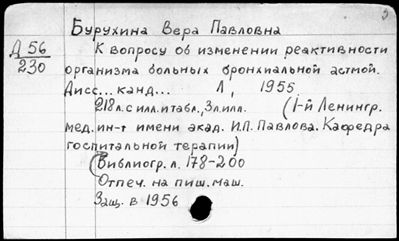 Бурухина Вера Павловна
Д 56
230
К вопросу об изменении реактивности
организма больных бронхиальной астмой.
Дисс... канд... Л, 1955
218 л. с илл. и табл., 3 л. илл. (1-й Ленингр.
мед. ин-т имени акад. И.П. Павлова. Кафедра
госпитальной терапии)
(Библиогр. л. 178-200
Отпеч. на пиш. маш.
Защ. в 1956